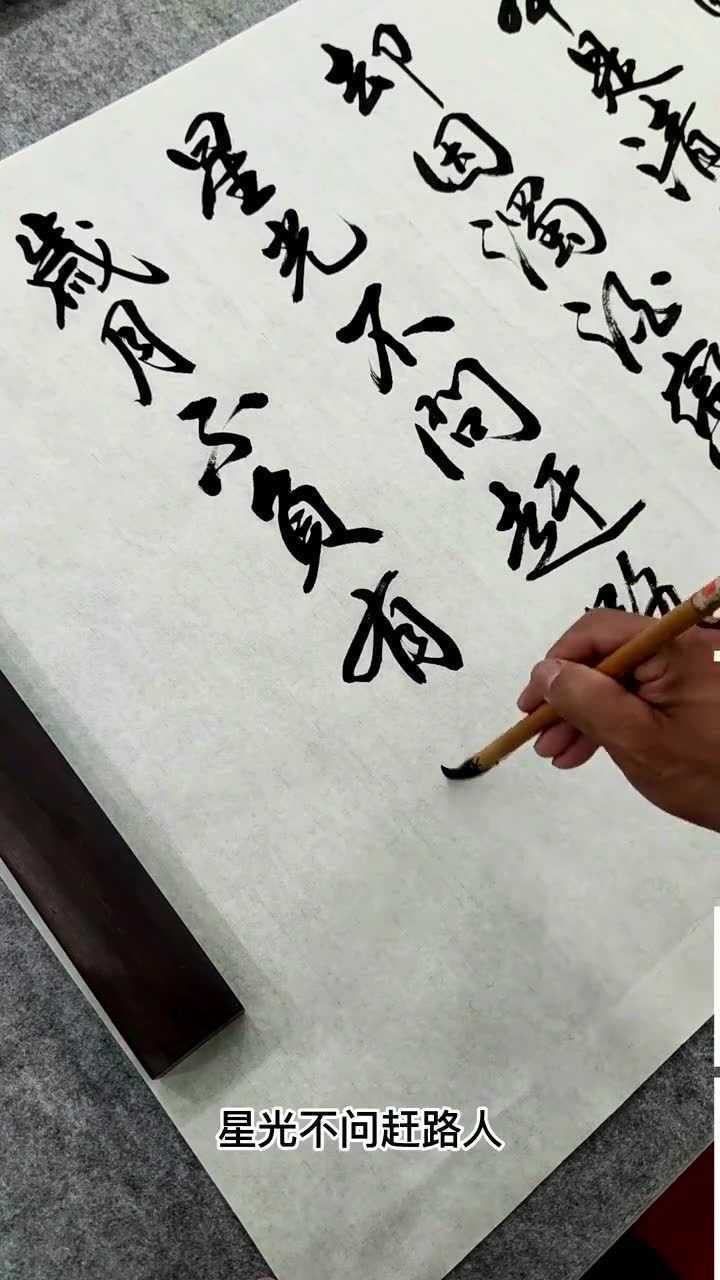 是清
却因濁酒
星光不問趕路
歲月不負有
星光不问赶路人